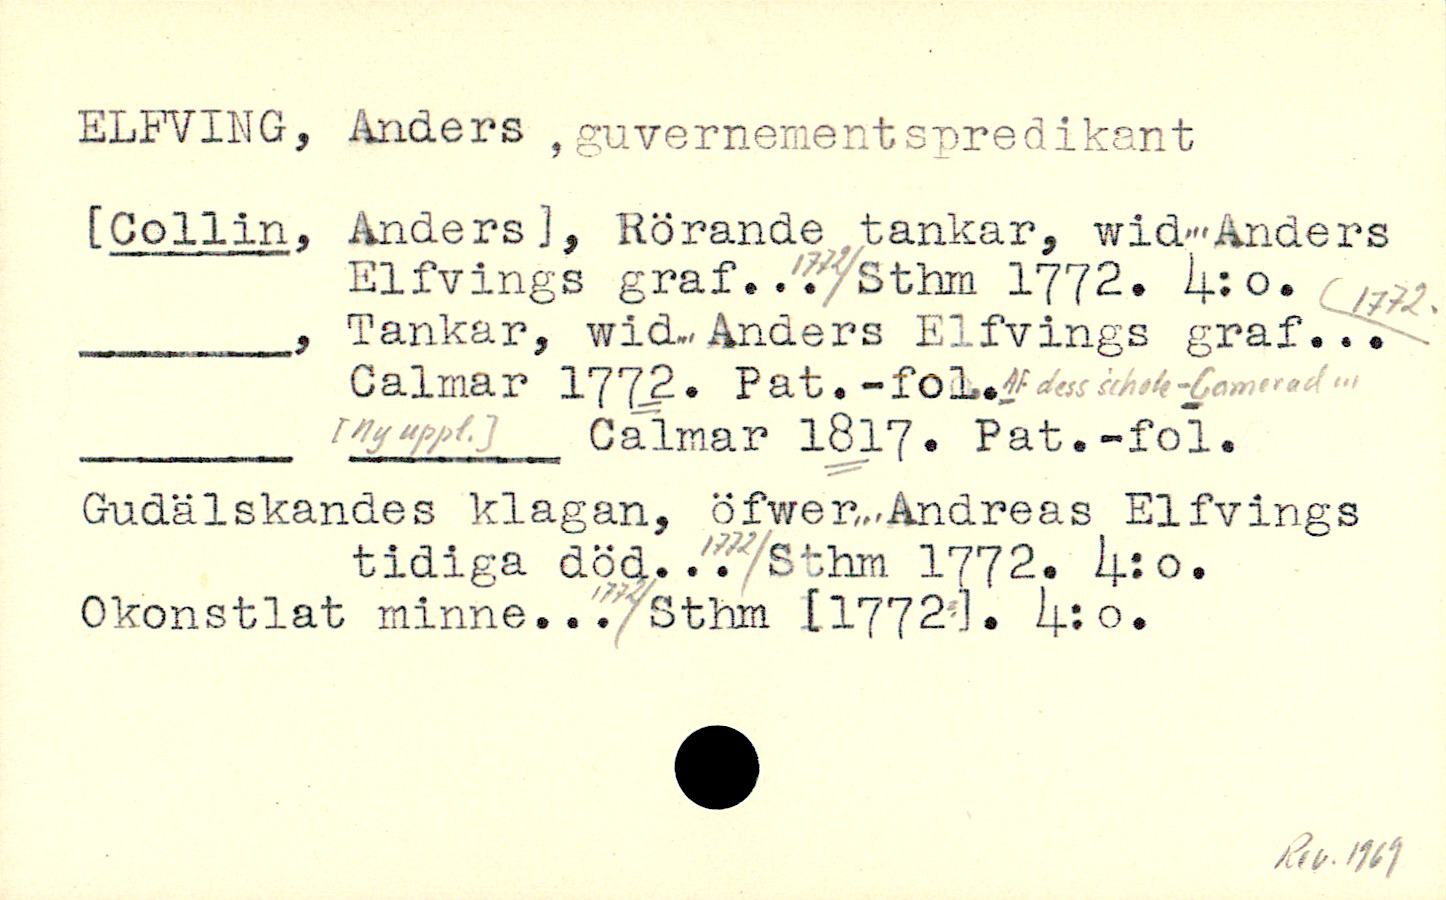 ELFVING, Anders , guvernementspredikant
[Collin, Anders], Rörande tankar, wid... Anders
Elfvings graf... 1772/ Sthm 1772. 4:o.
________, Tankar, wid... Anders Elfvings graf... 1772.
Calmar 1772. Pat.-fol. Af dess schole-Camerad ...
________ [Ny uppl.] ________ Calmar 1817. Pat.-fol.
Gudälskandes klagan, öfwer... Andreas Elfvings
tidiga död... 1772/ Sthm 1772. 4:o.
Okonstlat minne... 1772/ Sthm [1772]. 4:o.
Rev. 1969